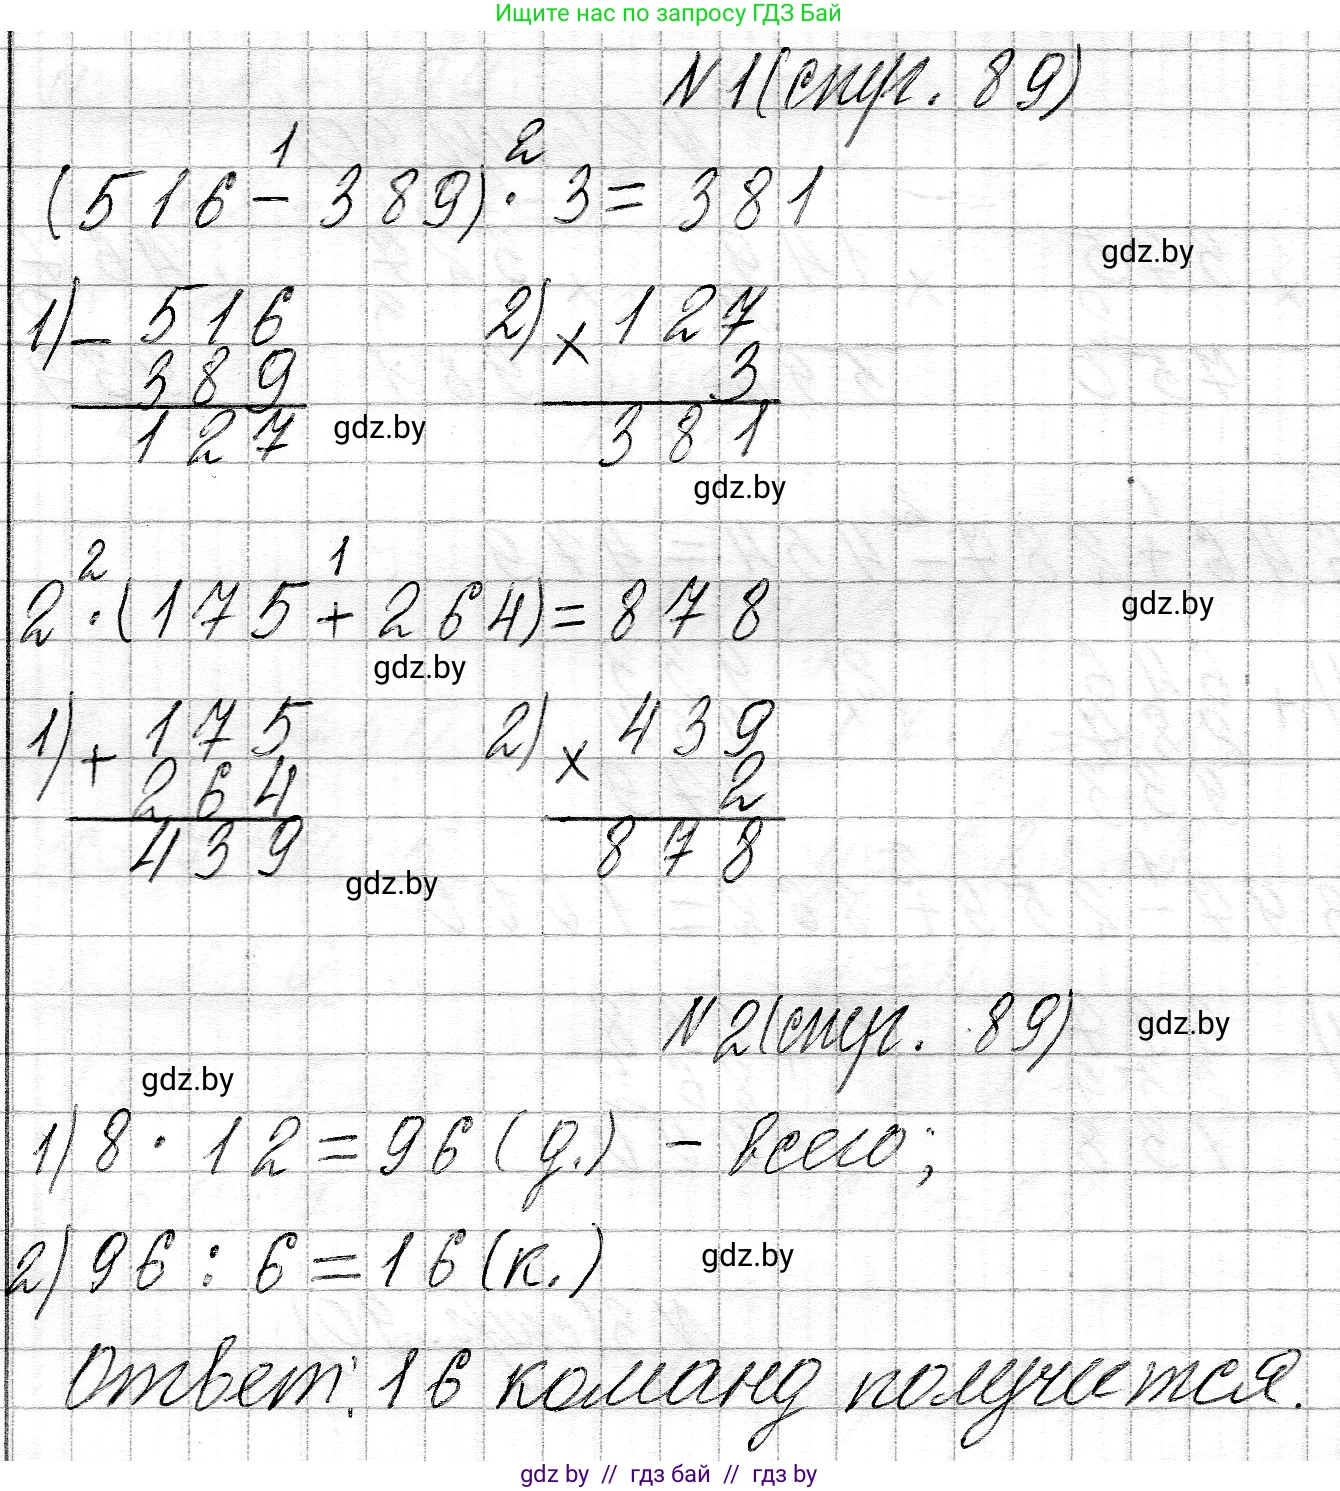 Ищите нас по запросу ГДЗ Бай
N 1 (стр. 89)
1 2
(516 - 389) · 3 = 381
gdz.by
1) - 516 2) × 127
389 3
127 gdz.by 381
gdz.by
2 1
2 · (175 + 264) = 878
gdz.by
gdz.by
1) + 175 2) × 439
264 2
439 878
gdz.by
N 2 (стр. 89) gdz.by
gdz.by
1) 8 · 12 = 96 (д.) - всего;
2) 96 : 6 = 16 (к.) gdz.by
Ответ: 16 команд получится.
gdz by // гдз бай // гдз by